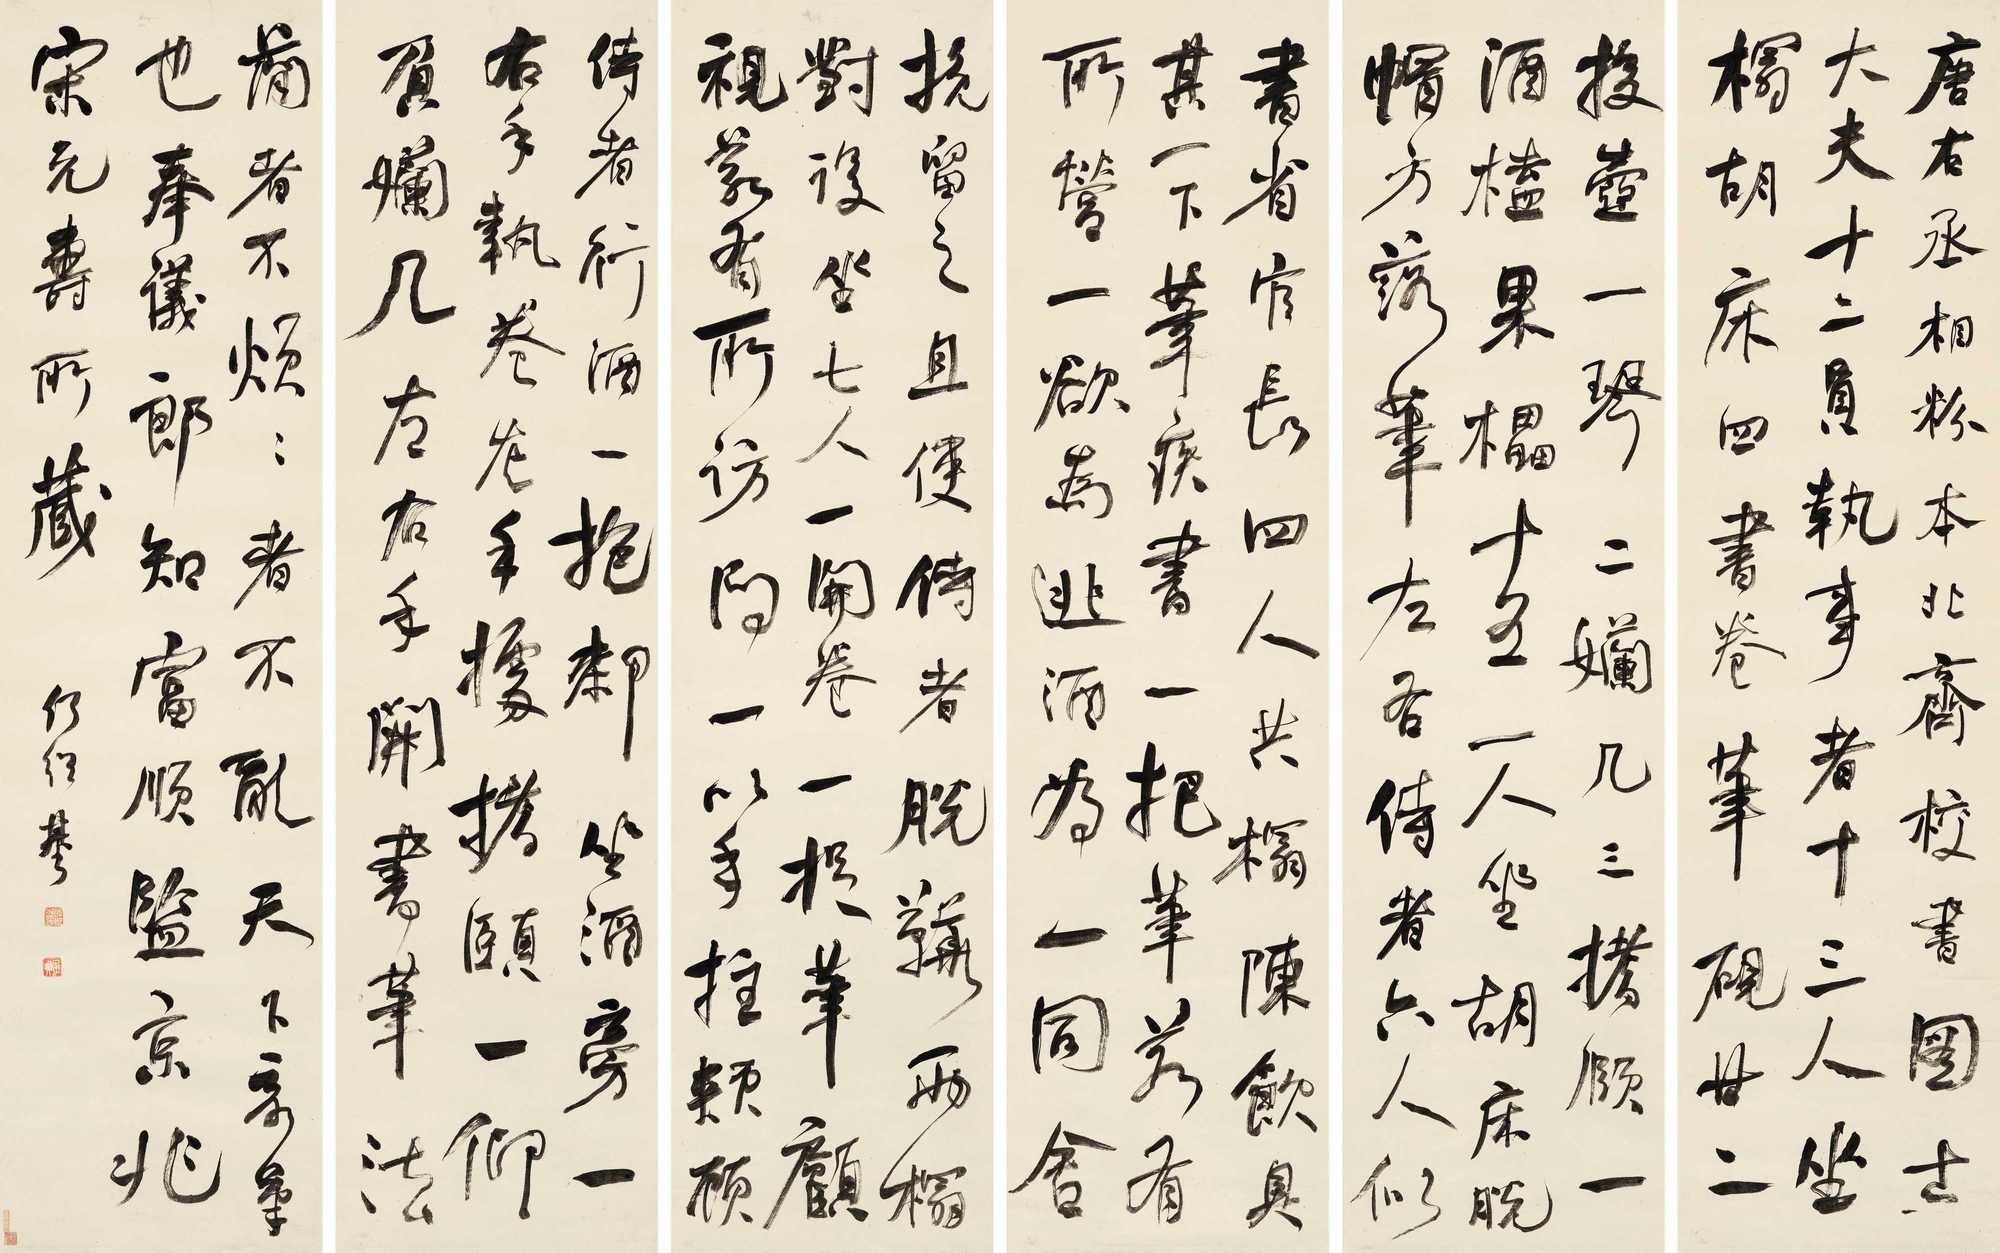 唐右丞相粉本北齊校書圖士
大夫十二員執事者十三人坐
榻胡床四書卷筆硯廿二
投壺一琴二嬾几三搘頤一
酒榼果櫑十五一人坐胡床脫
帽方落筆左右侍者六人似
書省官長四人共榻陳飲具
其一下筆疾書一把筆若有
所營一欲為逃酒為一同舍
挽留之且使侍者脫鞾兩榻
對設坐七人一開卷一捉筆顧
視若有所訪問一以手拄頰顧
侍者行酒一抱却坐酒旁一
右手執卷左手據搘頤一仰
負嬾几左右手開書筆法
簡者不煩〻者不亂天下奇筆
也奉議郎知富順監京兆
宋元壽所藏